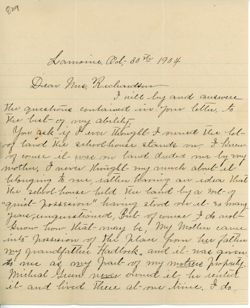 Lamoine, Oct. 30th 1904
Dear Mrs. Richardson
I will try and answer
the questions contained in your letter, to
the best of my ability.
You ask if I ever thought I owned the lot
of land the schoolhouse stands on. I knew
of course it was on land deeded me by my
mother, I never thought my much about it
belonging to me, rather having an idea that
the school house held the land by a sort of
"quiet possession" having stood on it so many
years, unquestioned, But of course I do not
know how that may be, My Mother came
into possession of the place from her father
my grandfather Hadlock, and it was given
to me as my part of my mothers property.
Michael Geand never owned it, he rented
it and lived there at one time, I do